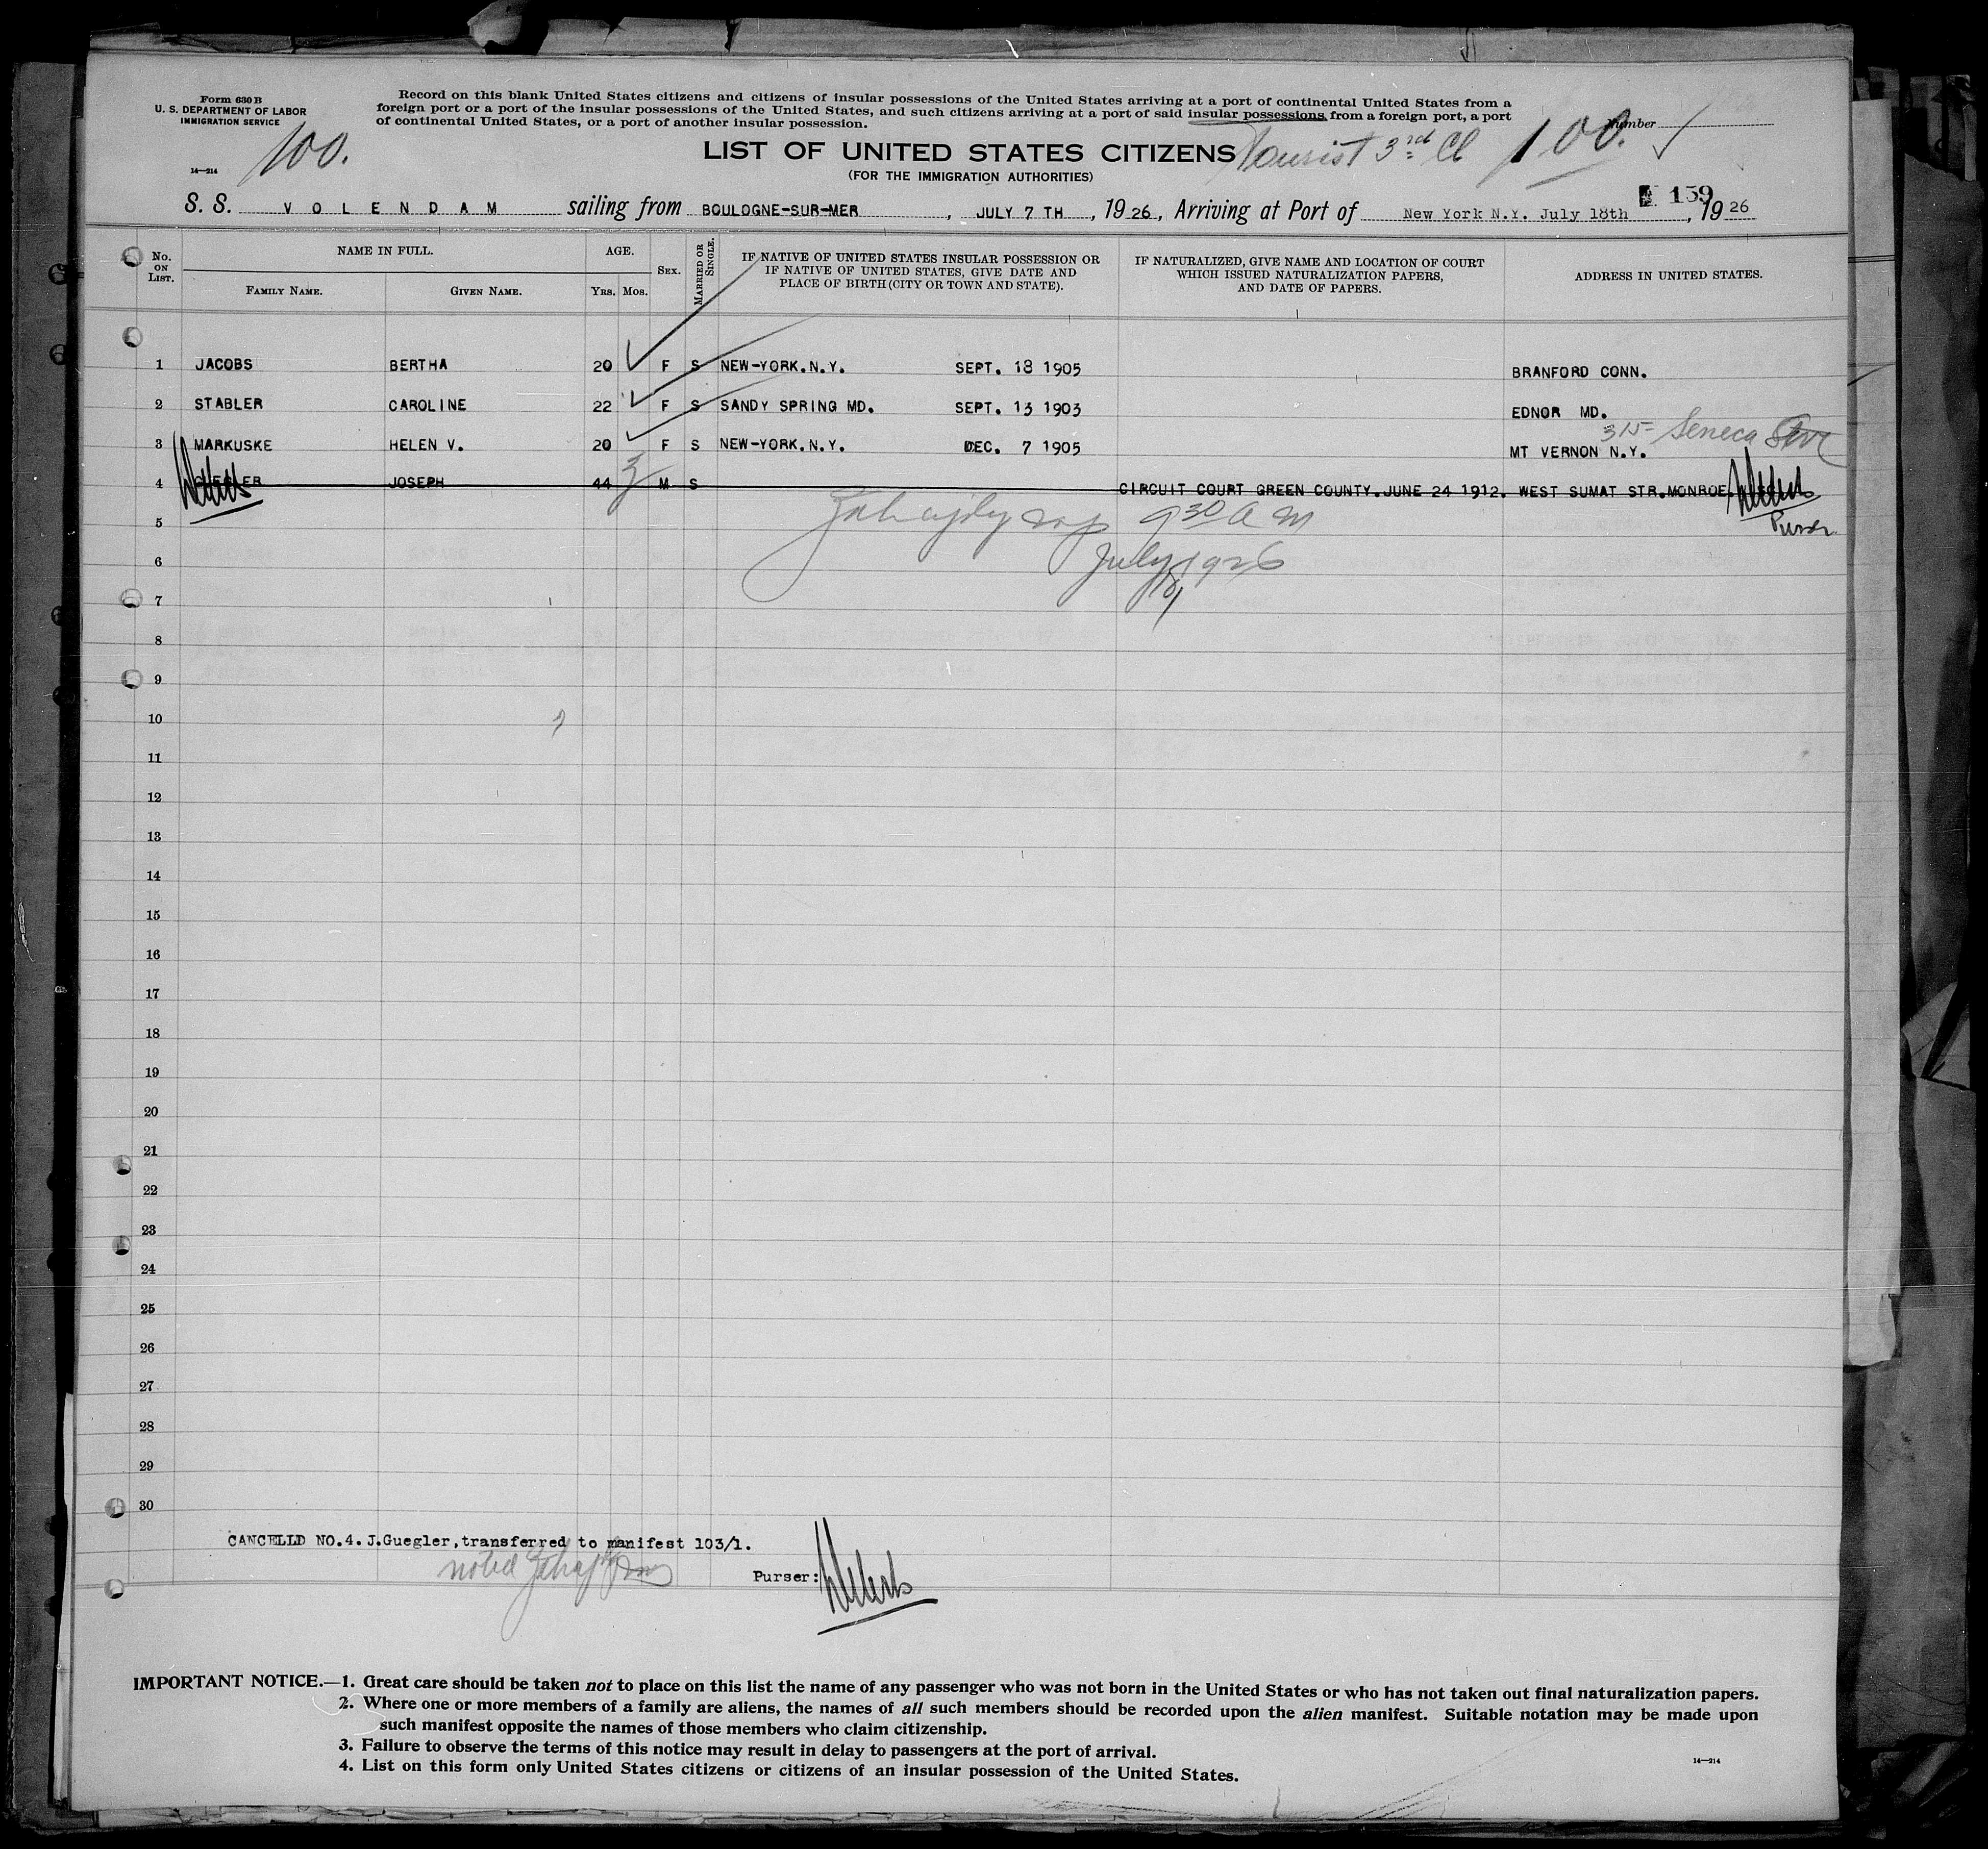 Form 630 B
U. S. DEPARTMENT OF LABOR
IMMIGRATION SERVICE
14—214
100.
Record on this blank United States citizens and citizens of insular possessions of the United States arriving at a port of continental United States from a
foreign port or a port of the insular possessions of the United States, and such citizens arriving at a port of said insular possessions from a foreign port, a port
of continental United States, or a port of another insular possession.
Number
LIST OF UNITED STATES CITIZENS Tourist 3rd Cl 100.
(FOR THE IMMIGRATION AUTHORITIES)
159
S. S. VOLENDAM sailing from BOULOGNE-SUR-MER, JULY 7 TH, 1926, Arriving at Port of New York N.Y. July 18th, 1926
No. ON LIST.
NAME IN FULL.
FAMILY NAME.
GIVEN NAME.
AGE.
YRS. MOS.
SEX.
MARRIED OR SINGLE.
IF NATIVE OF UNITED STATES INSULAR POSSESSION OR
IF NATIVE OF UNITED STATES, GIVE DATE AND
PLACE OF BIRTH (CITY OR TOWN AND STATE).
IF NATURALIZED, GIVE NAME AND LOCATION OF COURT
WHICH ISSUED NATURALIZATION PAPERS,
AND DATE OF PAPERS.
ADDRESS IN UNITED STATES.
1 JACOBS BERTHA 20 F S NEW-YORK.N.Y. SEPT. 18 1905 BRANFORD CONN.
2 STABLER CAROLINE 22 F S SANDY SPRING MD. SEPT. 13 1903 EDNOR MD.
315 Seneca Ave
3 MARKUSKE HELEN V. 20 F S NEW-YORK.N.Y. DEC. 7 1905 MT VERNON N.Y.
4 JOSEPH 44 M S CIRCUIT COURT GREEN COUNTY.JUNE 24 1912. WEST SUMAT STR.MONROE.
Purser
5
9 30 A M
6
July 18 1926
7
8
9
10
11
12
13
14
15
16
17
18
19
20
21
22
23
24
25
26
27
28
29
30
CANCELLD NO.4. J.Guegler,transferred to manifest 103/1.
noted
Purser:
IMPORTANT NOTICE.—1. Great care should be taken not to place on this list the name of any passenger who was not born in the United States or who has not taken out final naturalization papers.
2. Where one or more members of a family are aliens, the names of all such members should be recorded upon the alien manifest. Suitable notation may be made upon
such manifest opposite the names of those members who claim citizenship.
3. Failure to observe the terms of this notice may result in delay to passengers at the port of arrival.
4. List on this form only United States citizens or citizens of an insular possession of the United States.
14—214